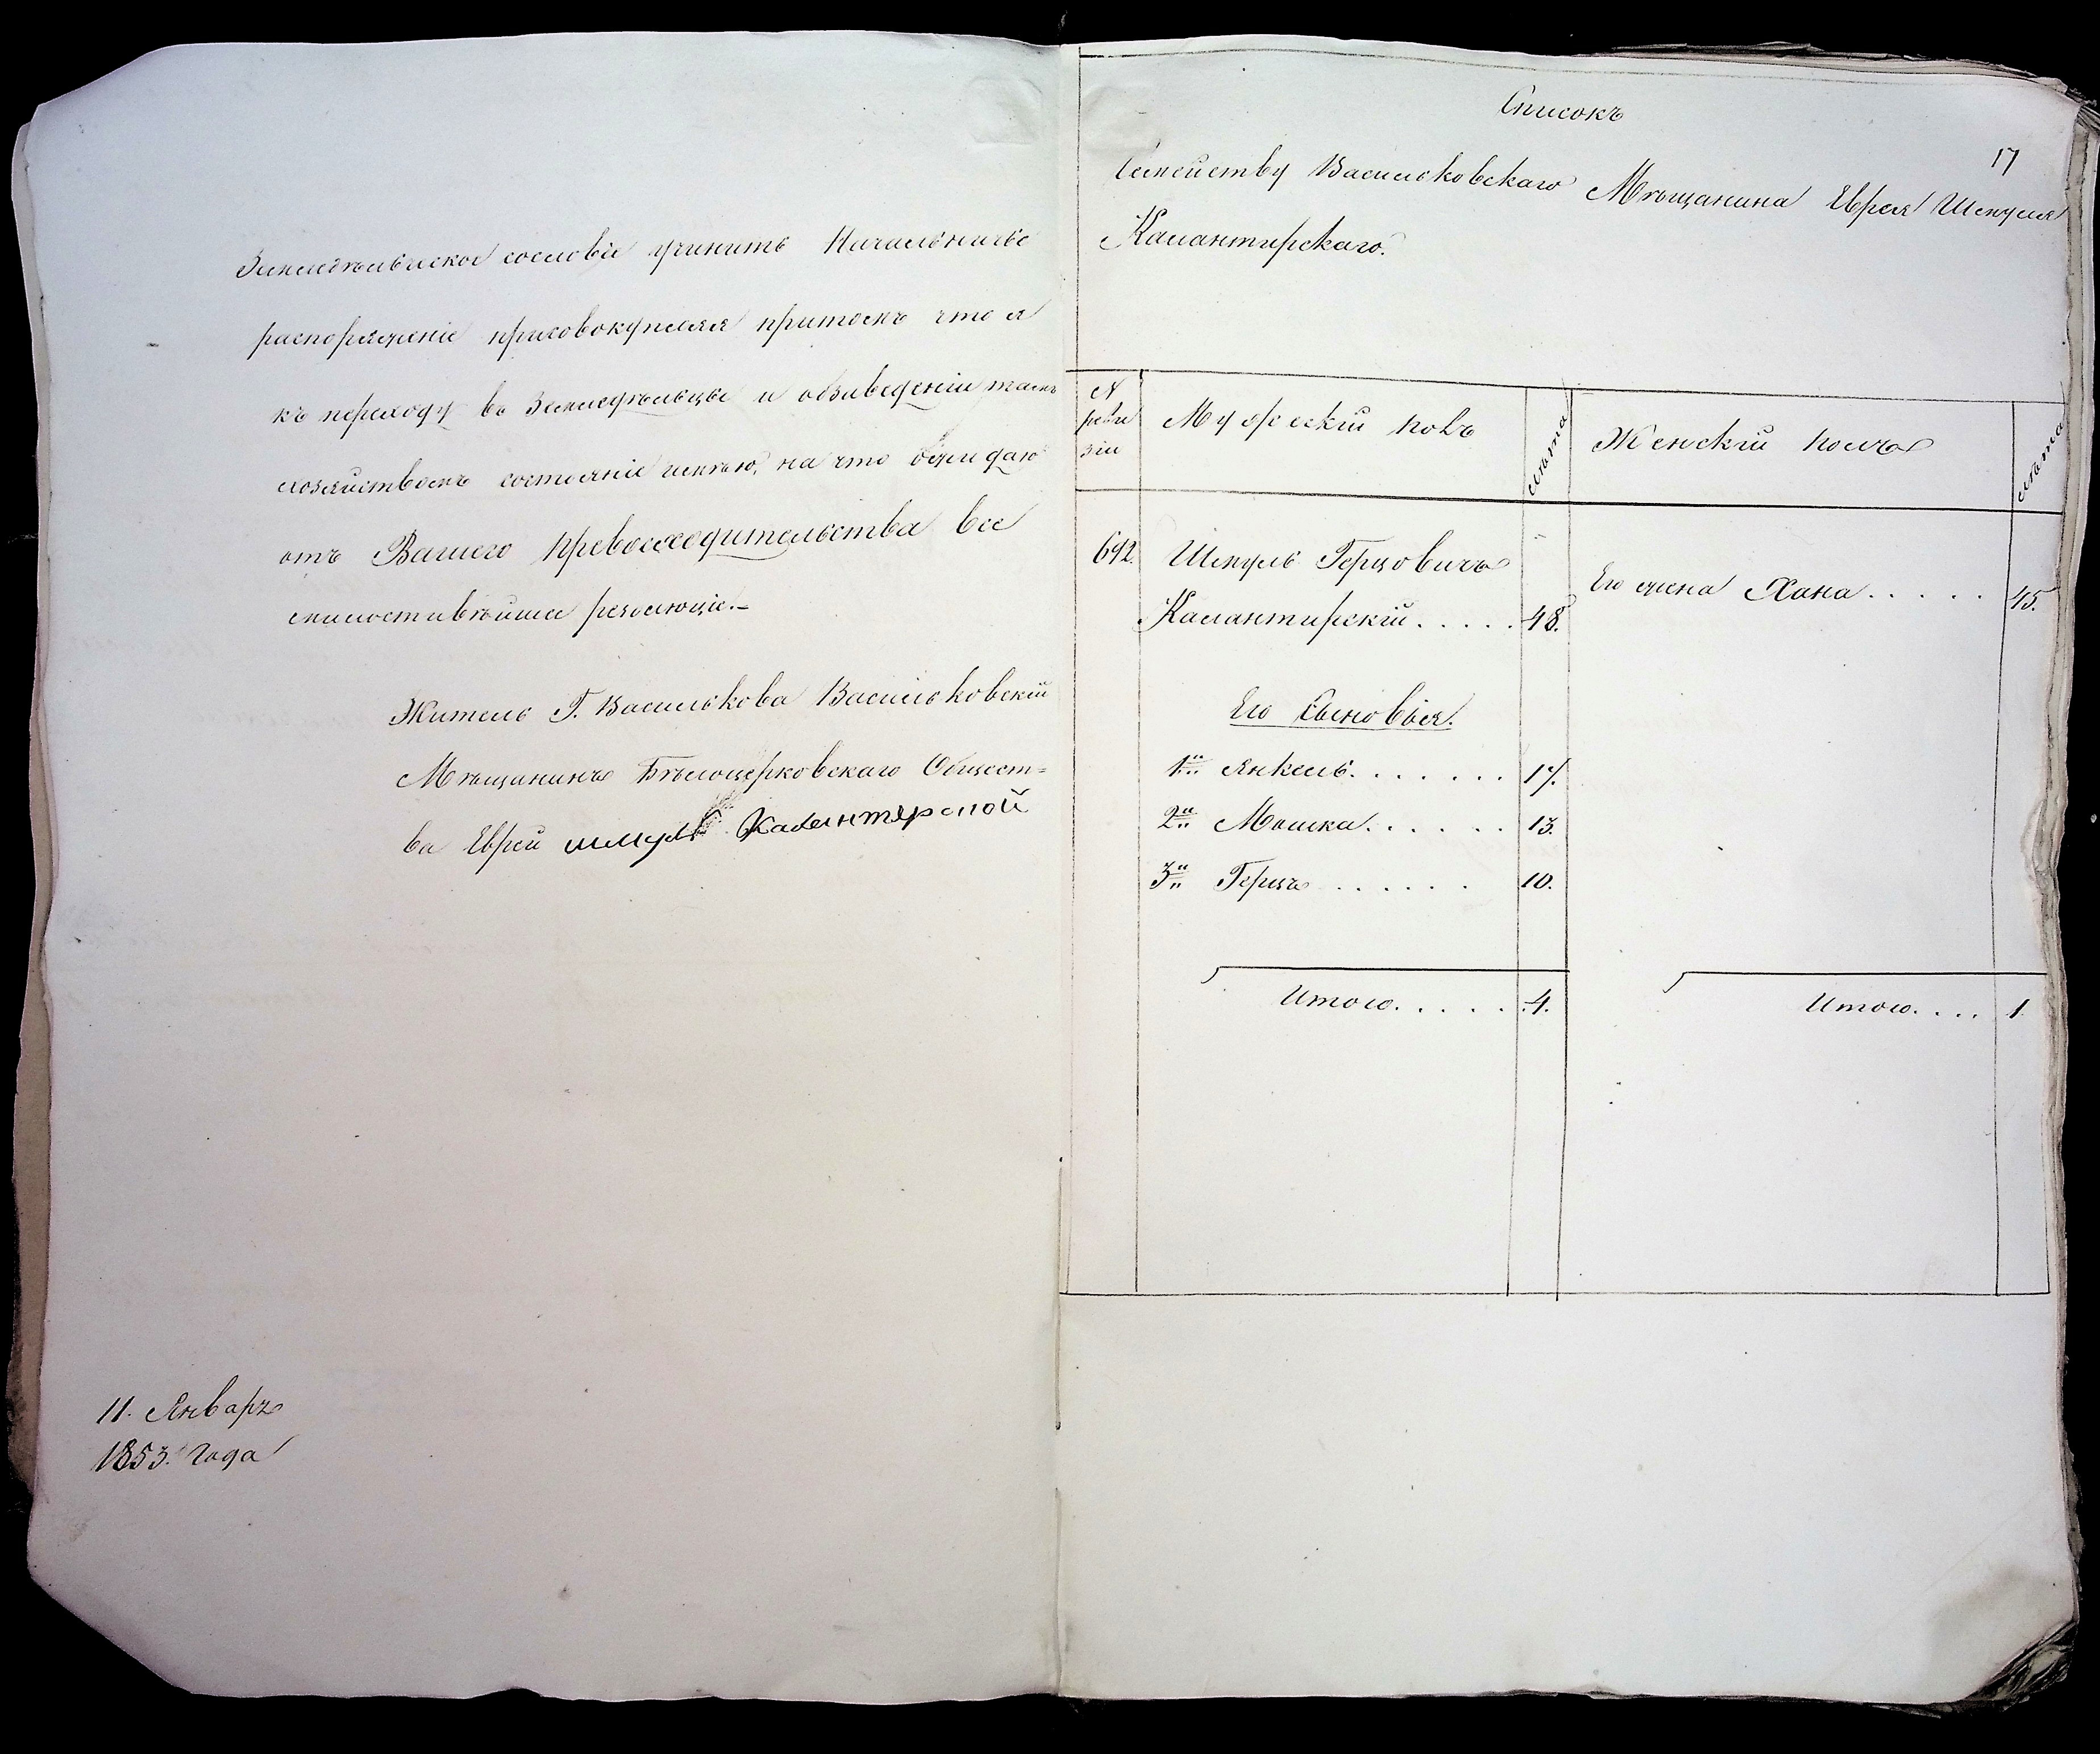 Земледѣльческое сословіе учинить Начальничье
распоряженіе присовокупляя притомъ что я
къ переходу въ Земледѣльцы и обзаведеніи тамъ
хозяйствомъ состояніе имѣю, на что ожидаю
отъ Вашего Превосходительства все
милостивѣйше резолюціе.-
Житель Г. Василькова Васильковскій
Мѣщанинъ Бѣлоцерковскаго Общест=
ва Еврей шмуль Калантирской
11. Январъ
1853. Года
Списокъ
17
Семейству Васильковскаго Мѣщанина Еврея Шмуля
Калантирскаго.
№ реви зіи
Мужескій полъ
лѣта
Женскій полъ
лѣта
692.
Шмуль Герцовичъ
Калантирскій . . . . . 48.
Его жена Хана . . . . . 45.
Его Сыновья.
1й Янкель . . . . . . . 17.
2й Мошка . . . . . . 13.
3й Герцъ . . . . . . 10.
Итого . . . . . 4.
Итого . . . . 1